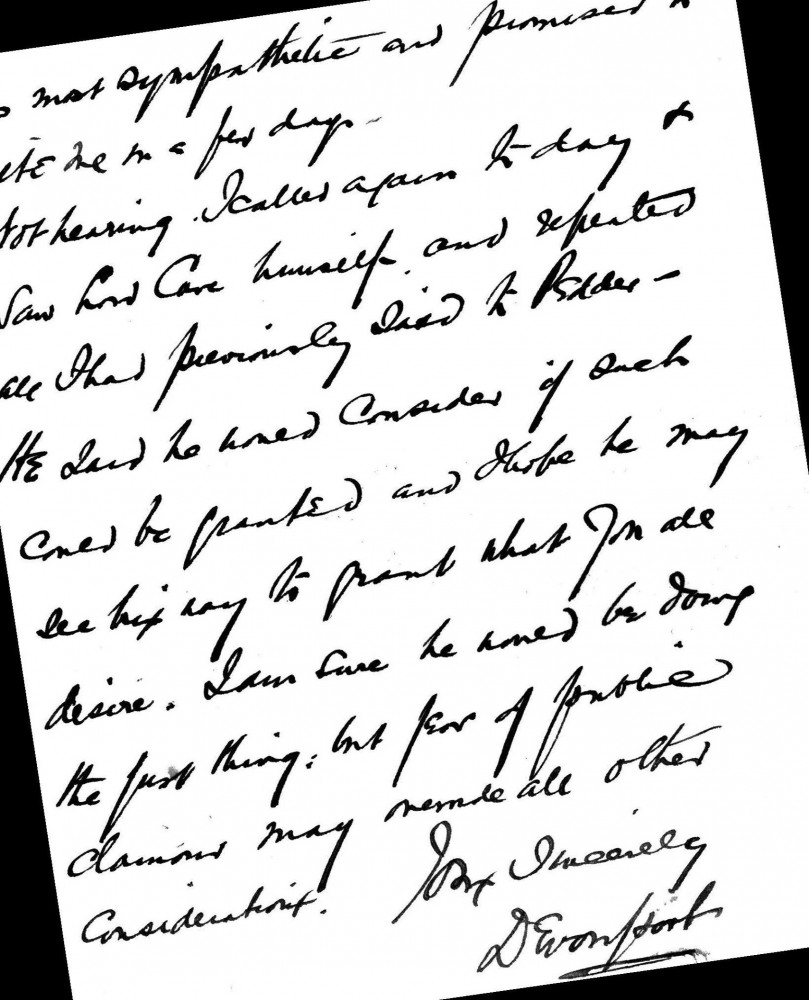 most sympathetic and promised to
me in a few days -
Not hearing. I called again to day &
Saw Lord Cave himself, and repeated
all I had previously said to Pedder -
He said he would consider if such
could be granted and I hope he may
see his way to grant what you all
desire. I am sure he would be doing
the just thing; but fear of public
clamour may override all other
considerations.
Yrs Sincerely
Devonport